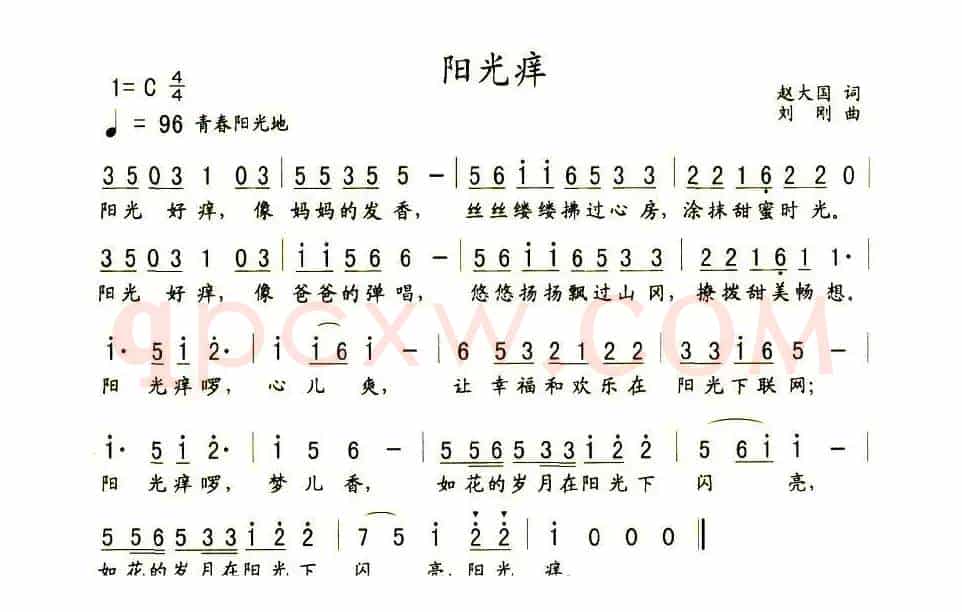 阳光痒
1= C 4/4
赵大国 词
♩ = 96 青春阳光地
刘 刚 曲
3 5 0 3 1 0 3 | 5 5 3 5 5 – | 5 6 i i 6 5 3 3 | 2 2 1 6 2 2 0 |
阳光 好痒, 像 妈妈的发香, 丝丝缕缕拂过心房, 涂抹甜蜜时光。
3 5 0 3 1 0 3 | i i 5 6 6 – | 5 6 i i 6 5 3 3 | 2 2 1 6 1 1· |
阳光 好痒, 像 爸爸的弹唱, 悠悠扬扬飘过山冈, 撩拨甜美畅想。
qpcxw.com
i· 5 i 2· | i i 6 i – | 6 5 3 2 1 2 2 | 3 3 i 6 5 – |
阳 光痒啰, 心儿 爽, 让 幸福和欢乐在 阳光下联网;
i· 5 i 2· | i 5 6 – | 5 5 5 6 5 3 3 i 2 2 | 5 6 i i – |
阳 光痒啰, 梦儿香, 如花的岁月在阳光下 闪 亮,
5 5 5 6 5 3 3 i 2 2 | 7 5 i 2 2 | i 0 0 0 ‖
如花的岁月在阳光下 闪 亮, 阳光 痒。